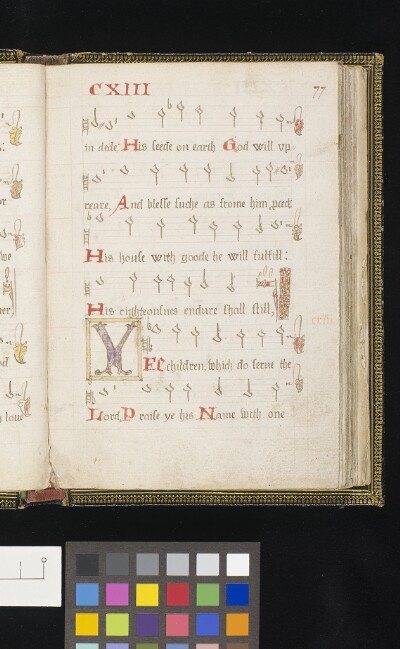 CXIII
77
in dede: His seede on earth God will up-
reare, And blesse suche as frome him
His house with goode he will fulfill:
His righteousnes endure shall still,
YEE children, which do serue the
Lord, Praise ye his Name with one